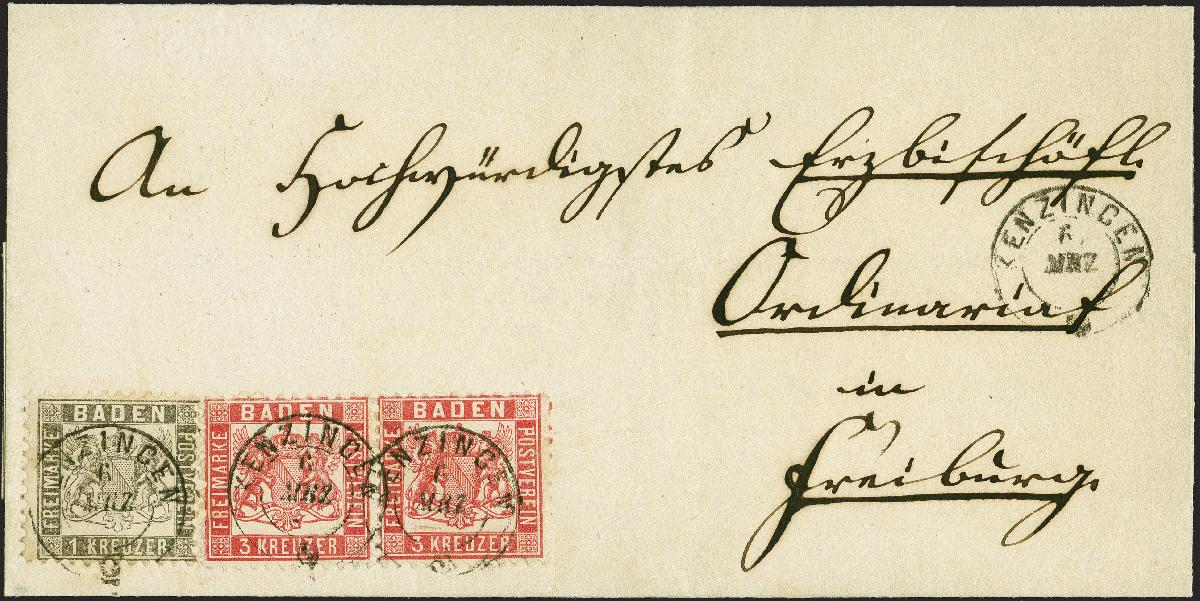 An Hochwürdigstes Erzbischöfl.
Ordinariat
in
Freiburg.
KENZINGEN
6
MRZ
BADEN
FREIMARKE
POSTVEREIN
1 KREUZER
KENZINGEN
6
MRZ
BADEN
FREIMARKE
POSTVEREIN
3 KREUZER
KENZINGEN
6
MRZ
BADEN
FREIMARKE
POSTVEREIN
3 KREUZER
KENZINGEN
6
MRZ